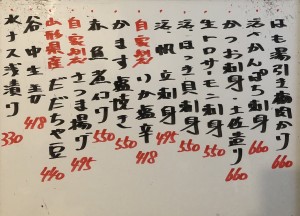 はも湯引き梅肉かけ 660
活〆かんぱち刺身 660
かつお刺身 土佐造り 660
生トロサーモン刺身 550
活ほっき貝刺身 550
活帆立刺身 495
自家製 いか塩辛 418
かます塩焼き 550
赤魚煮付け 550
自家製 さつま揚げ 495
山形県産 だだちゃ豆 440
谷中生姜 418
水ナス浅漬り 330